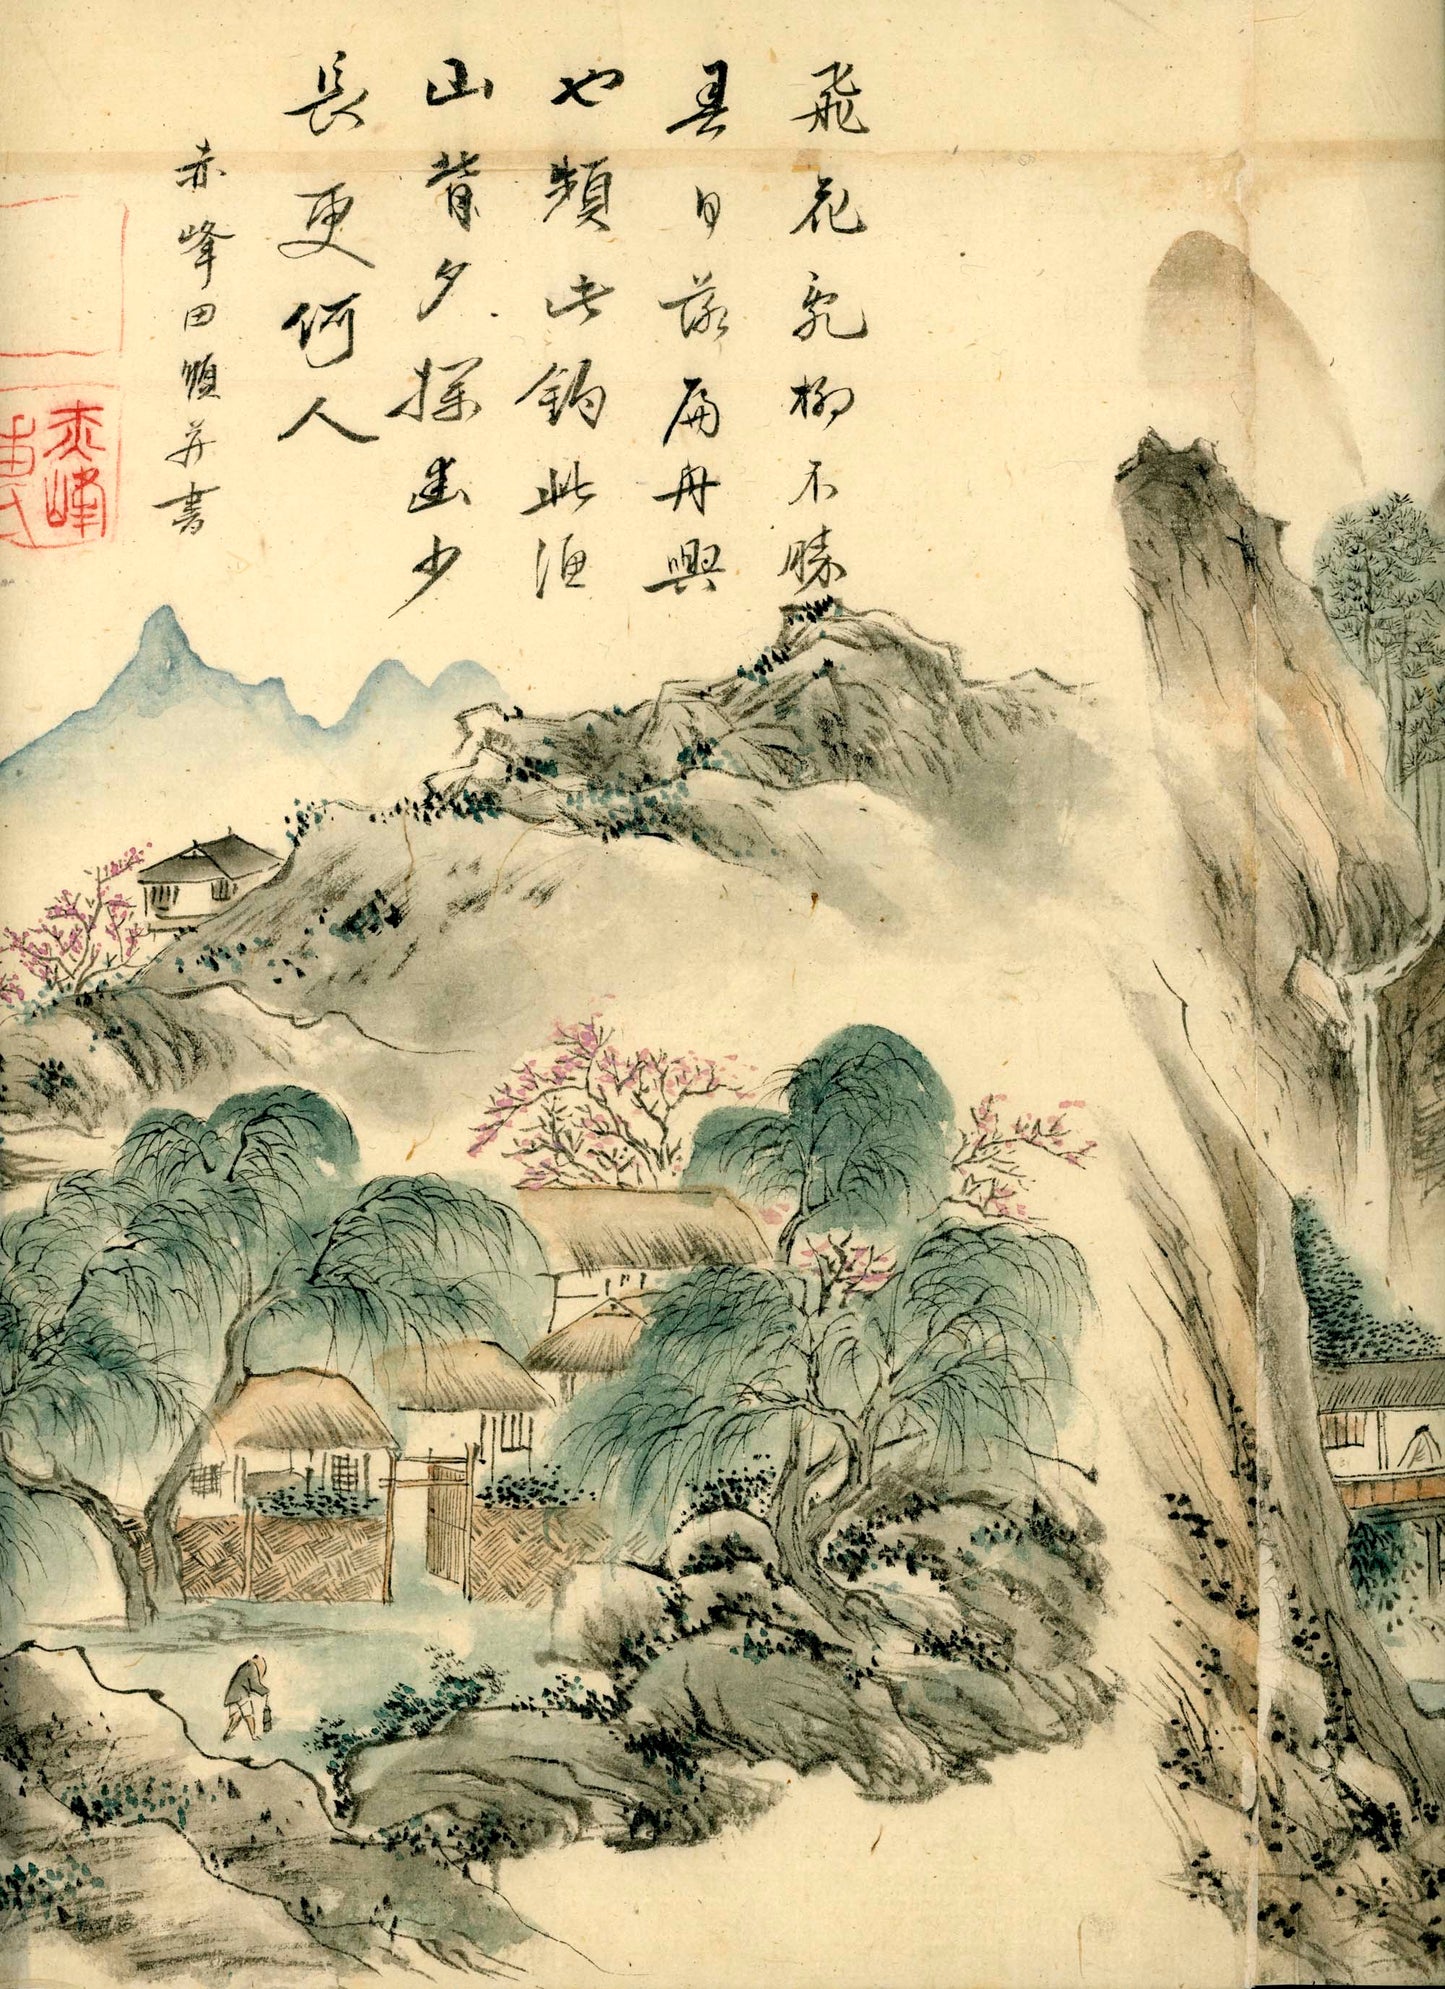 飛花乱柳不勝
春日落扁舟興
也頻此釣此漁
山背夕探幽少
長更何人
赤峰田頎并書
赤峰